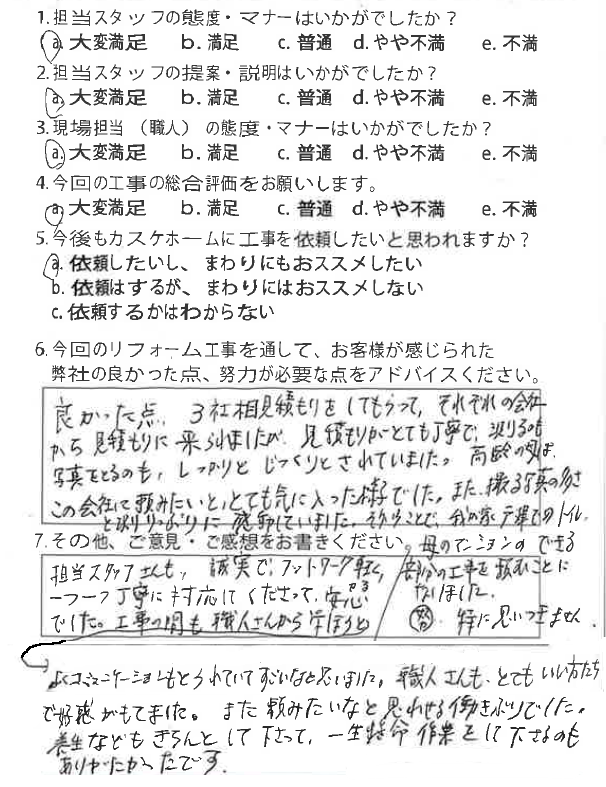 1.担当スタッフの態度・マナーはいかがでしたか？
a.大変満足 b.満足 c.普通 d.やや不満 e.不満
2.担当スタッフの提案・説明はいかがでしたか？
a.大変満足 b.満足 c.普通 d.やや不満 e.不満
3.現場担当（職人）の態度・マナーはいかがでしたか？
a.大変満足 b.満足 c.普通 d.やや不満 e.不満
4.今回の工事の総合評価をお願いします。
a.大変満足 b.満足 c.普通 d.やや不満 e.不満
5.今後もカスケホームに工事を依頼したいと思われますか？
a.依頼したいし、まわりにもおススメしたい
b.依頼はするが、まわりにはおススメしない
c.依頼するかはわからない
6.今回のリフォーム工事を通して、お客様が感じられた
弊社の良かった点、努力が必要な点をアドバイスください。
良かった点、3社相見積もりをしてもらって、それぞれの会社
から見積もりに来られましたが、見積もりがとても丁寧で、測るのも
写真をとるのも、しっかりとじっくりとされていました。高齢の母は、
この会社に頼みたいと、とても気に入った様子でした。また、撮る写真の多さ
と測りっぷりに感動していました。そういうことで、我が家、戸建てのトイレ、
7.その他、ご意見・ご感想をお書きください。
母のマンションのできる
部分の工事を頼むことに
なりました。
特に思いつきません。
担当スタッフさんも、誠実で、フットワーク軽く、
一つ一つ丁寧に対応してくださって、安心
でした。工事の間も職人さんから
よくコミュニケーションもとられていてすごいなと思いました。職人さんも、とてもいい方たち
で好感がもてました。また頼みたいなと思わせる働きぶりでした。
養生などもきちんとして下さって、一生懸命作業をして下さるのも
ありがたかったです。